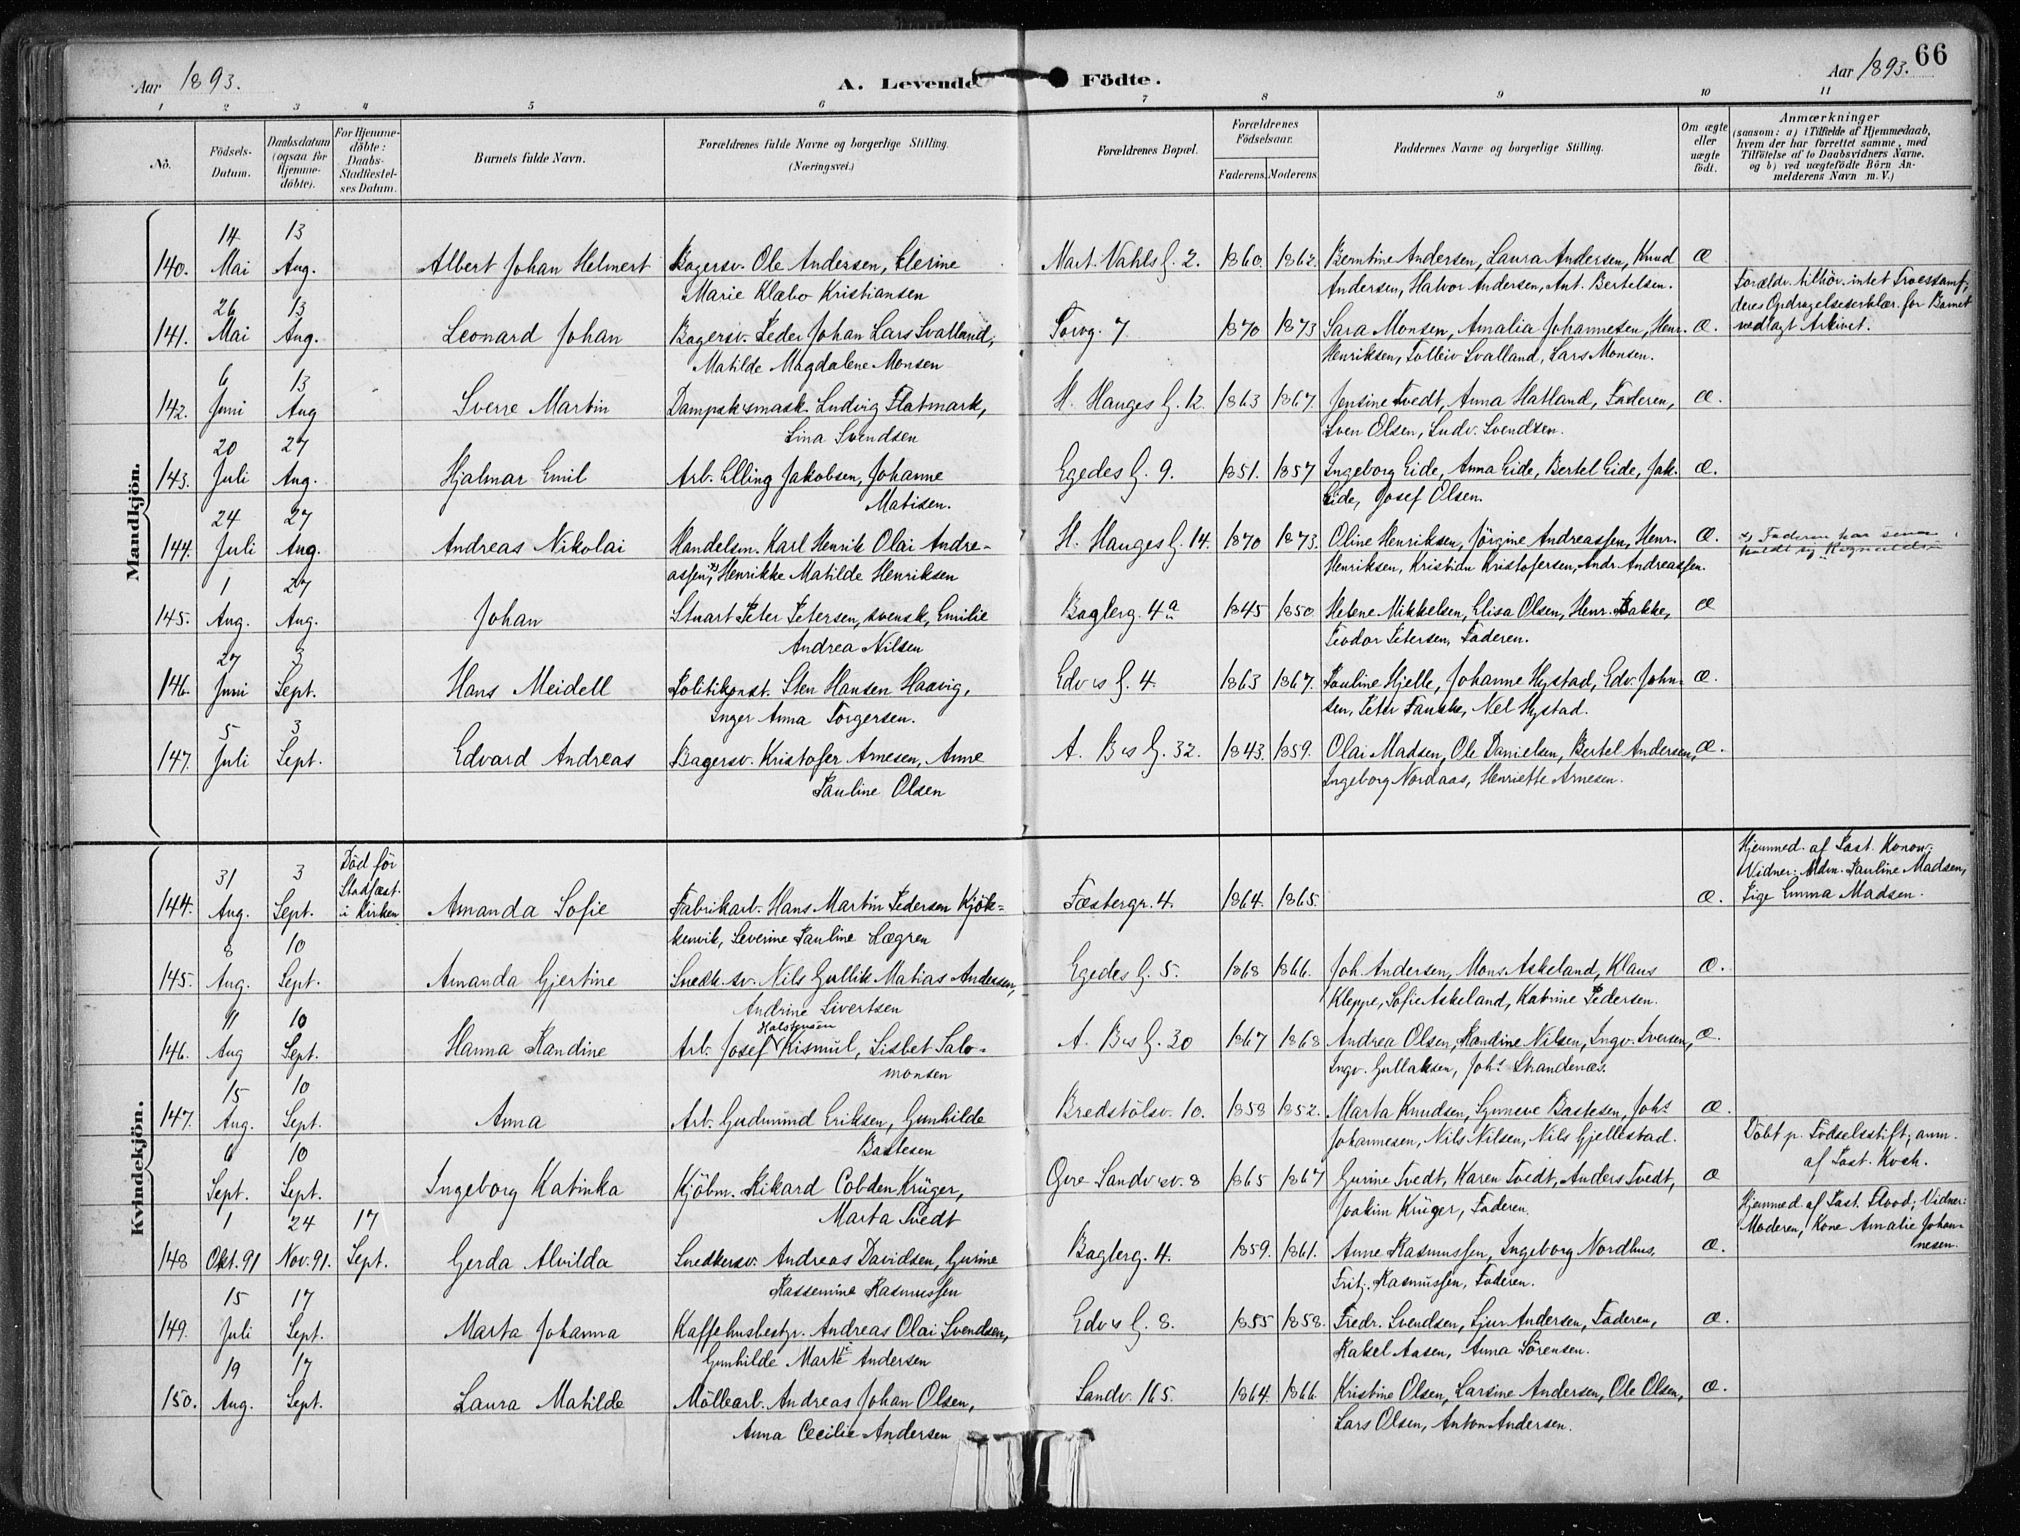 Aar 1893.
A. Levende Födte.
Aar 1893.
66
1 2 3 4 5 6 7 8 9 10 11
No.
Födsels-Datum.
Daabsdatum (ogsaa for Hjemme-döbte).
For Hjemme-döbte: Daabs-Stadfæstel-ses Datum.
Barnets fulde Navn.
Forældrenes fulde Navne og borgerlige Stilling.
(Næringsvei.)
Forældrenes Bopæl.
Forældrenes Födselsaar.
Faderens. Moderens.
Faddernes Navne og borgerlige Stilling.
Om ægte eller uægte födt.
Anmærkninger
(saasom: a) i Tilfælde af Hjemmedaab, hvem der har forrettet samme, med Tilföielse af to Daabsvidners Navne, og b) ved uægtefödte Börn Anmelderens Navn m. V.)
Mandkjön.
140. 14 Mai 13 Aug. Albert Johan Helmert Bagersv. Ole Andersen, Elerine Mart. Vahls G. 2. 1860 1862. Berntine Andersen, Laura Andersen, Knud Æ
Marie Klæbo Kristiansen Andersen, Halvor Andersen, Ant. Bertelsen.
Forældr. tilhör. intet Troessamf;
deres Opdragelseserklær. for Barnet
vedlagt Arkivet.
141. 26 Mai 13 Aug. Leonard Johan Bagersv. Peder Johan Lars Svalland, Torvg. 7 1870 1873 Sara Monsen, Amalia Johannesen, Henr. Æ.
Matilde Magdalene Monsen Henriksen, Tolleiv Svalland, Lars Monsen.
142. 6 Juni 13 Aug Sverre Martin Dampsk.smask. Ludvig Flatmark, H. Hauges G. 12. 1863 1867. Jensine Tvedt, Anna Hatland, Faderen, Æ.
Sina Svendsen Sven Olsen, Ludv. Svendsen.
143. 20 Juli 27 Aug. Hjalmar Emil Arb. Elling Jakobsen, Johanne Egedes G. 9. 1851. 1857 Ingeborg Eide, Anna Eide, Bertel Eide, Jak. Æ.
Matisen. Eide, Josef Olsen.
144. 24 Juli 27 Aug. Andreas Nikolai Handelsm. Karl Henrik Olai Andre- H. Hauges G. 14. 1870 1873. Oline Henriksen, Jörgine Andreassen, Henr. Æ. x) Faderen har senere
assen x), Henrikke Matilde Henriksen Henriksen, Kristian Kristofersen, Andr. Andreassen. kaldt sig
145. 1 Aug. 27 Aug. Johan Stuart Peter Petersen, svensk, Emilie Baglerg. 4a 1845 1850. Helene Mikkelsen, Elisa Olsen, Henr. Bakke, Æ
Andrea Nilsen Teodor Petersen, Faderen.
146. 27 Juni 3 Sept. Hans Meidell Politikonst. Sten Hansen Haavig, Edv.s G. 4. 1863 1867. Pauline Hjelle, Johanne Hystad, Edv. John- Æ.
Inger Anna Torgersen. sen, Peter Fankhe, Nel Hystad.
147. 5 Juli 3 Sept. Edvard Andreas Bagersv. Kristofer Arnesen, Anne A. B.s G. 32. 1843. 1859. Olai Madsen, Ole Danielsen, Bertel Andersen, Æ.
Pauline Olsen Ingeborg Nordaas, Henriette Arnesen.
Kvindekjön.
144. 31 Aug. 3 Sept. Död för Stadfæst. i Kirken Amanda Sofie Fabrikarb. Hans Martin Pedersen Kjök- Fæstergr. 4. 1864. 1865. Æ.
kenvik, Severine Pauline Lægren
Hjemmed. af Past. Konow;
Vidner: Mdm. Pauline Madsen,
Pige Emma Madsen.
145. 8 Aug. 10 Sept. Amanda Gjertine Snedk.sv. Nils Gullik Matias Andersen, Egedes G. 5. 1868 1866. Joh. Andersen, Mons Askeland, Klaus Æ.
Andrine Sivertsen Kleppe, Sofie Askeland, Katrine Pedersen.
146. 11 Aug 10 Sept. Hanna Randine Arb. Josef Halstensen Kismul, Lisbet Salo- A. B.s G. 30 1867 1868 Andrea Olsen, Randine Nilsen, Ingv. Iversen, Æ.
monsen Ingv. Gullaksen, Johs. Strandenæs.
147. 15 Aug. 10 Sept. Anna Arb. Gudmund Eriksen, Gunhilde Bredstölsv. 10. 1858 1852. Marta Knudsen, Synneve Bastesen, Johs. Æ.
Bastesen Johannesen, Nils Nilsen, Nils Gjellestad.
6 Sept. 10 Sept. Ingeborg Katinka Kjöbm. Rikard Cobden Krüger, Övre Sandv.sv. 8 1865 1867 Gurine Tvedt, Karen Tvedt, Anders Tvedt, Æ
Marta Tvedt Joakim Krüger, Faderen.
Döbt p. Födselsstift; anm.
af Past. Koch.
148 1 Okt. 91 24 Nov. 91. 17 Sept. Gerda Alvilda Snedkersv. Andreas Davidsen, Gurine Baglerg. 4. 1859. 1861. Anne Rasmussen, Ingeborg Nordhus, Æ.
Rassemine Rasmussen Fritj. Rasmussen, Faderen.
Hjemmed. af Past. Flood; Vidner:
Moderen, Kone Amalie Johan-
nesen.
149. 15 Juli 17 Sept. Marta Johanna Kaffehusbestyr. Andreas Olai Svendsen, Edv.s G. 8. 1855 1858. Fredr. Svendsen, Sjur Andersen, Faderen, Æ.
Gunhilde Marte Andersen Rakel Aasen, Anna Sörensen.
150. 19 Aug. 17 Sept. Laura Matilde Möllearb. Andreas Johan Olsen, Sandv. 165. 1864. 1866. Kristine Olsen, Larsine Andersen, Ole Olsen, Æ.
Anna Cecilie Andersen Lars Olsen, Anton Andersen.